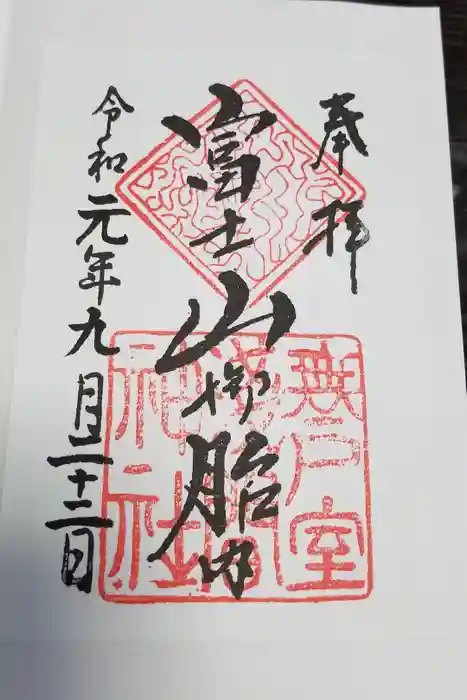 奉拝
富士山御胎内
令和元年九月二十二日
無戸室
浅間
神社